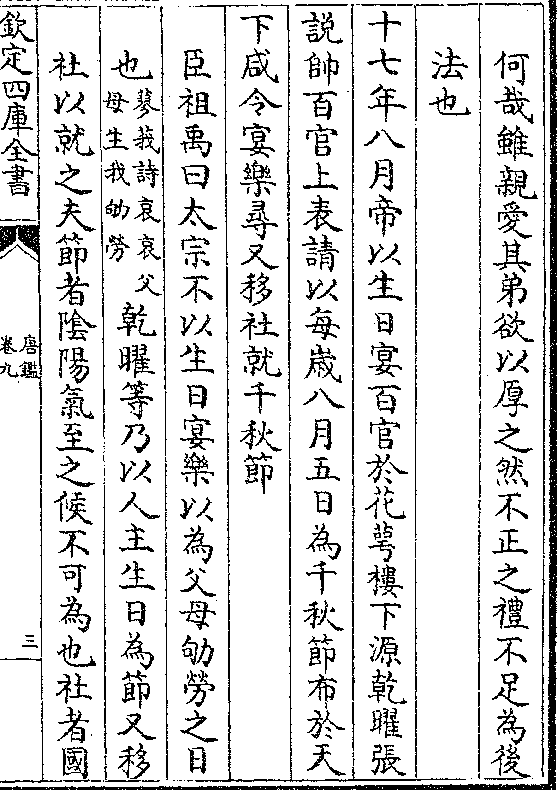 何哉雖親愛其弟欲以厚之然不正之禮不足為後
法也
十七年八月帝以生日宴百官於花萼樓下源乾曜張
説帥百官上表請以每嵗八月五日為千秋節布於天
下咸令宴樂尋又移社就千秋節
臣祖禹曰太宗不以生日宴樂以為父母劬勞之日
也蓼莪詩哀哀父母生我劬勞乾曜等乃以人主生日為節又移
社以就之夫節者隂陽氣至之候不可為也社者國
欽定四庫全書
唐鑑
卷九
三